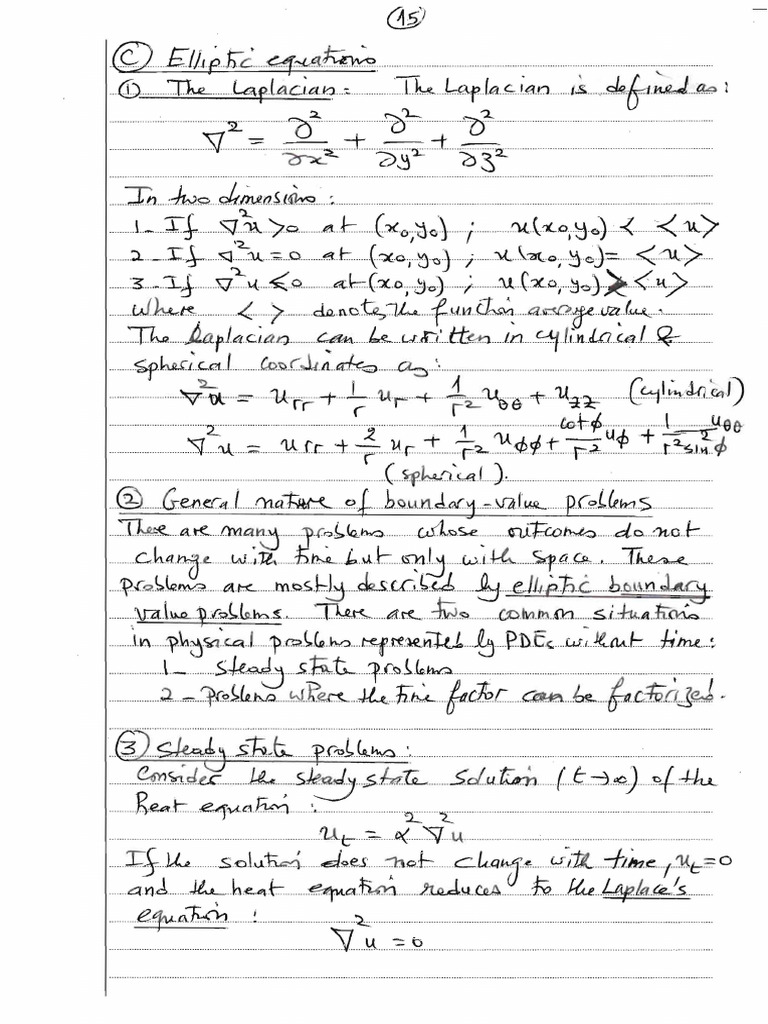 15
C Elliptic equations
1 The Laplacian: The Laplacian is defined as:
∇² = ∂²/∂x² + ∂²/∂y² + ∂²/∂z²
In two dimensions:
1- If ∇²u > 0 at (x₀,y₀) ; u(x₀,y₀) < <u>
2- If ∇²u = 0 at (x₀,y₀) ; u(x₀,y₀) = <u>
3- If ∇²u ≤ 0 at (x₀,y₀) ; u(x₀,y₀) > <u>
where < > denotes the function average value.
The Laplacian can be written in cylindrical &
spherical coordinates as:
∇²u = u_rr + 1/r u_r + 1/r² u_θθ + u_zz (cylindrical)
∇²u = u_rr + 2/r u_r + 1/r² u_φφ + cot φ/r² u_φ + 1/r² sin²φ u_θθ
(spherical).
2 General nature of boundary-value problems
There are many problems whose outcomes do not
change with time but only with space. These
problems are mostly described by elliptic boundary
value problems. There are two common situations
in physical problems represented by PDEs without time:
1- steady state problems
2- problems where the time factor can be factorized.
3 Steady state problems:
Consider the steady state solution (t→∞) of the
heat equation:
u_t = α² ∇²u
If the solution does not change with time, u_t = 0
and the heat equation reduces to the Laplace's
equation:
∇²u = 0